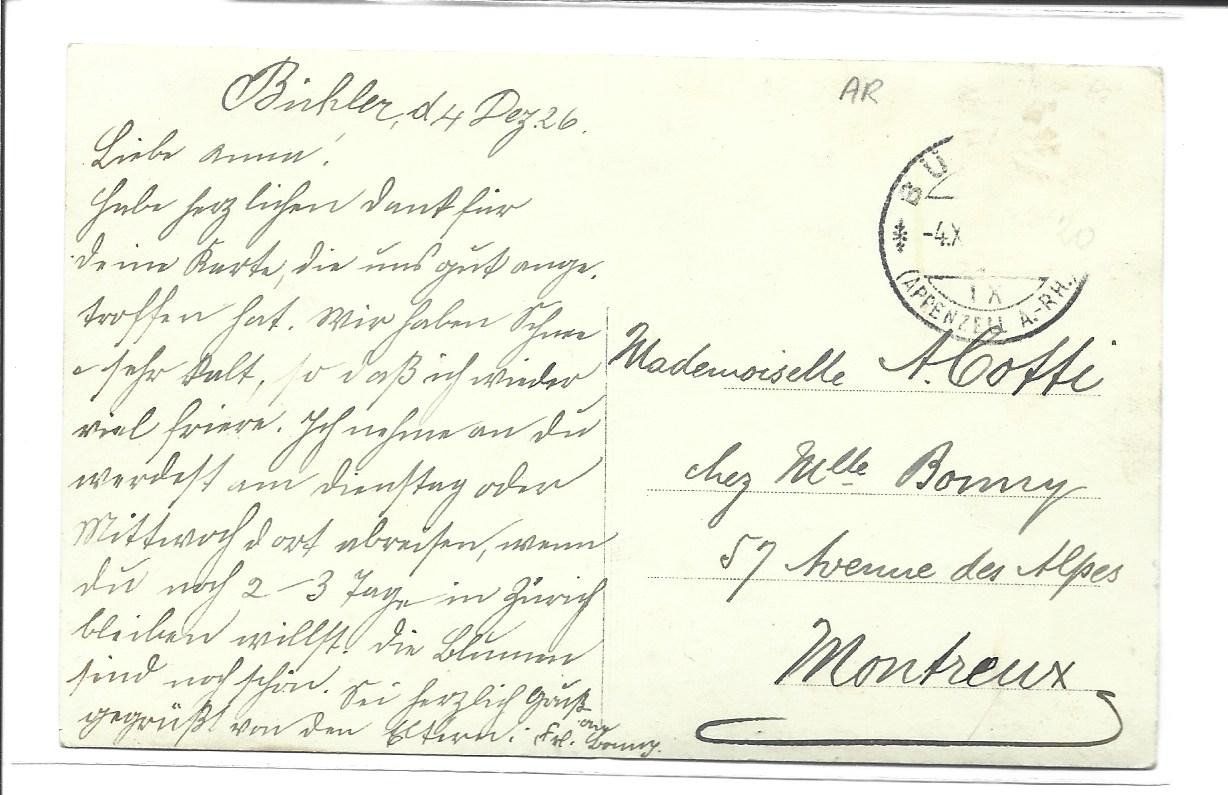 Bühler, d. 4 Dez. 26.
Liebe Anna!
Habe herzlichen Dank für
deine Karte, die uns gut ange-
troffen hat. Wir haben Schnee
sehr kalt, so daß ich wieder
viel friere. Ich nehme an du
werdest am Dienstag oder
Mittwoch dort abreisen, wenn
du noch 2-3 Tage in Zürich
bleiben willst. die Blumen
sind noch schön. Sei herzlich
gegrüßt von den Eltern.
Gruß
an
Frl. Bonny.
AR
BÜ
-4.X
IX
(APPENZELL A.-RH.)
20
Mademoiselle A. Cotti
chez Mlle Bonny
57 Avenue des Alpes
Montreux